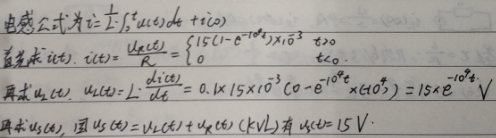 电感公式为 i = 1/L ∫₀ᵗ u(t)dt + i(0)
首先求i(t). i(t) = u_R(t)/R = { 15(1-e^{-10⁴t})×10^{-3} t>0 0 t<0.
再求u_L(t). u_L(t) = L · di(t)/dt = 0.1×15×10^{-3}(0-e^{-10⁴t}×(-10⁴)) = 15×e^{-10⁴t} V
再求u_S(t), 因 u_S(t) = u_L(t) + u_R(t) (KVL) 有 u_S(t) = 15V.